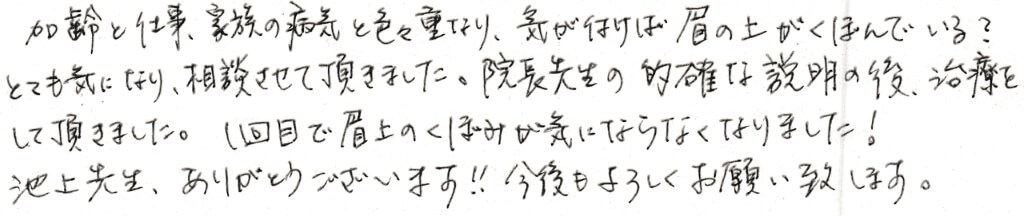 加齢と仕事、家族の病気と色々重なり、気が付けば眉の上がくぼんでいる?
とても気になり、相談させて頂きました。院長先生の的確な説明の後、治療を
して頂きました。1回目で眉上のくぼみが気にならなくなりました!
池上先生、ありがとうございます!!今後もよろしくお願い致します。